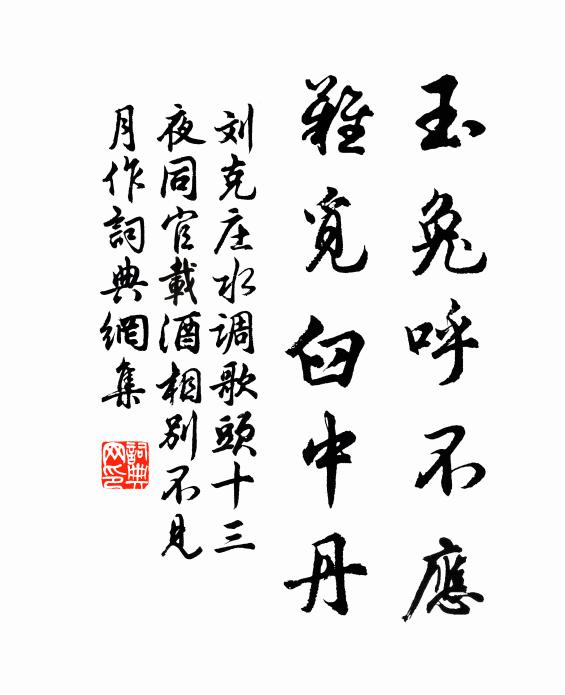 玉兔呼不應
難覓臼中丹
刘克庄水调歌頭十三
夜同官載酒相別不見
月作詞典網集
詞典网印